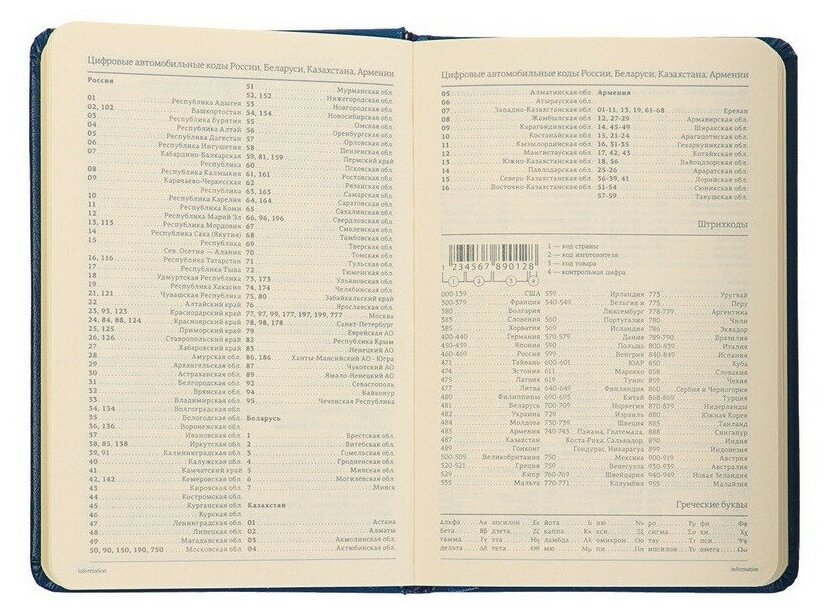 Цифровые автомобильные коды России, Беларуси, Казахстана, Армении
Россия
01 Республика Адыгея
02, 102 Башкортостан
03 Республика Бурятия
04 Республика Алтай
05 Республика Дагестан
06 Республика Ингушетия
07 Кабардино-Балкарская
Республика
08 Республика Калмыкия
09 Карачаево-Черкесская
Республика
10 Республика Карелия
11 Республика Коми
12 Республика Марий Эл
13, 113 Республика Мордовия
14 Республика Саха (Якутия)
15 Республика
Сев. Осетия — Алания
16, 116 Республика Татарстан
17 Республика Тыва
18 Удмуртская Республика
19 Республика Хакасия
21, 121 Чувашская Республика
22 Алтайский край
23, 93, 123 Краснодарский край
24, 84, 88, 124 Красноярский край
25, 125 Приморский край
26, 126 Ставропольский край
27 Хабаровский край
28 Амурская обл.
29 Архангельская обл.
30 Астраханская обл.
31 Белгородская обл.
32 Брянская обл.
33 Владимирская обл.
34, 134 Волгоградская обл.
35 Вологодская обл.
36, 136 Воронежская обл.
37 Ивановская обл.
38, 85, 138 Иркутская обл.
39, 91 Калининградская обл.
40 Калужская обл.
41 Камчатский край
42, 142 Кемеровская обл.
43 Кировская обл.
44 Костромская обл.
45 Курганская обл.
46 Курская обл.
47 Ленинградская обл.
48 Липецкая обл.
49 Магаданская обл.
50, 90, 150, 190, 750 Московская обл.
51 Мурманская обл.
52, 152 Нижегородская обл.
53 Новгородская обл.
54, 154 Новосибирская обл.
55 Омская обл.
56 Оренбургская обл.
57 Орловская обл.
58 Пензенская обл.
59, 81, 159 Пермский край
60 Псковская обл.
61, 161 Ростовская обл.
62 Рязанская обл.
63, 163 Самарская обл.
64, 164 Саратовская обл.
65 Сахалинская обл.
66, 96, 196 Свердловская обл.
67 Смоленская обл.
68 Тамбовская обл.
69 Тверская обл.
70 Томская обл.
71 Тульская обл.
72 Тюменская обл.
73, 173 Ульяновская обл.
74, 174 Челябинская обл.
75, 80 Забайкальский край
76 Ярославская обл.
77, 97, 99, 177, 197, 199, 777 Москва
78, 98, 178 Санкт-Петербург
79 Еврейская АО
82 Республика Крым
83 Ненецкий АО
86, 186 Ханты-Мансийский АО - Югра
87 Чукотский АО
89 Ямало-Ненецкий АО
92 Севастополь
94 Байконур
95 Чеченская Республика
Беларусь
1 Брестская обл.
2 Витебская обл.
3 Гомельская обл.
4 Гродненская обл.
5 Минская обл.
6 Могилёвская обл.
7 Минск
Казахстан
01 Астана
02 Алматы
03 Акмолинская обл.
04 Актюбинская обл.
information
Цифровые автомобильные коды России, Беларуси, Казахстана, Армении
05 Алматинская обл.
06 Атырауская обл.
07 Западно-Казахстанская обл.
08 Жамбылская обл.
09 Карагандинская обл.
10 Костанайская обл.
11 Кызылординская обл.
12 Мангистауская обл.
13 Южно-Казахстанская обл.
14 Павлодарская обл.
15 Северо-Казахстанская обл.
16 Восточно-Казахстанская обл.
Армения
01-11, 13, 19, 61-68 Ереван
12, 27-29 Армавирская обл.
14, 45-49 Ширакская обл.
15, 21-24 Арагацотнская обл.
16, 31-35 Гехаркуникская обл.
17, 42, 43 Котайкская обл.
18, 56 Вайоцдзорская обл.
25-26 Араратская обл.
36-39, 41 Лорийская обл.
51-54 Сюникская обл.
57-59 Тавушская обл.
Штрихкоды
1 234567 890128
1 2 3 4
1 — код страны
2 — код изготовителя
3 — код товара
4 — контрольная цифра
000-139 США
300-379 Франция
380 Болгария
383 Словения
385 Хорватия
400-440 Германия
450-459 Япония
460-469 Россия
471 Тайвань
474 Эстония
475 Латвия
477 Литва
480 Филиппины
481 Беларусь
482 Украина
484 Молдова
485 Армения
487 Казахстан
489 Гонконг
500-509 Великобритания
520-521 Греция
529 Кипр
535 Мальта
539 Ирландия
540-549 Бельгия и
Люксембург
560 Португалия
569 Исландия
570-579 Дания
590 Польша
599 Венгрия
600-601 ЮАР
611 Марокко
619 Тунис
640-649 Финляндия
690-695 Китай
700-709 Норвегия
729 Израиль
730-739 Швеция
740-745 Панама, Гватемала,
Коста-Рика, Сальвадор,
Гондурас, Никарагуа
750 Мексика
759 Венесуэла
760-769 Швейцария
770-771 Колумбия
773 Уругвай
775 Перу
778-779 Аргентина
780 Чили
786 Эквадор
789-790 Бразилия
800-839 Италия
840-849 Испания
850 Куба
858 Словакия
859 Чехия
860 Сербия и Черногория
868-869 Турция
870-879 Нидерланды
880 Южная Корея
885 Таиланд
888 Сингапур
890 Индия
899 Индонезия
900-919 Австрия
930-939 Австралия
940-949 Новая Зеландия
955 Малайзия
Греческие буквы
альфа Αα эпсилон Εε йота Ιι ню Νν ро Ρρ фи Φφ
бета Ββ дзета Ζζ каппа Κκ кси Ξξ сигма Σσ хи Χχ
гамма Γγ эта Ηη ламбда Λλ омикрон Οο тау Ττ пси Ψψ
дельта Δδ тета Θθ мю Μμ пи Ππ ипсилон Υυ омега Ωω
information